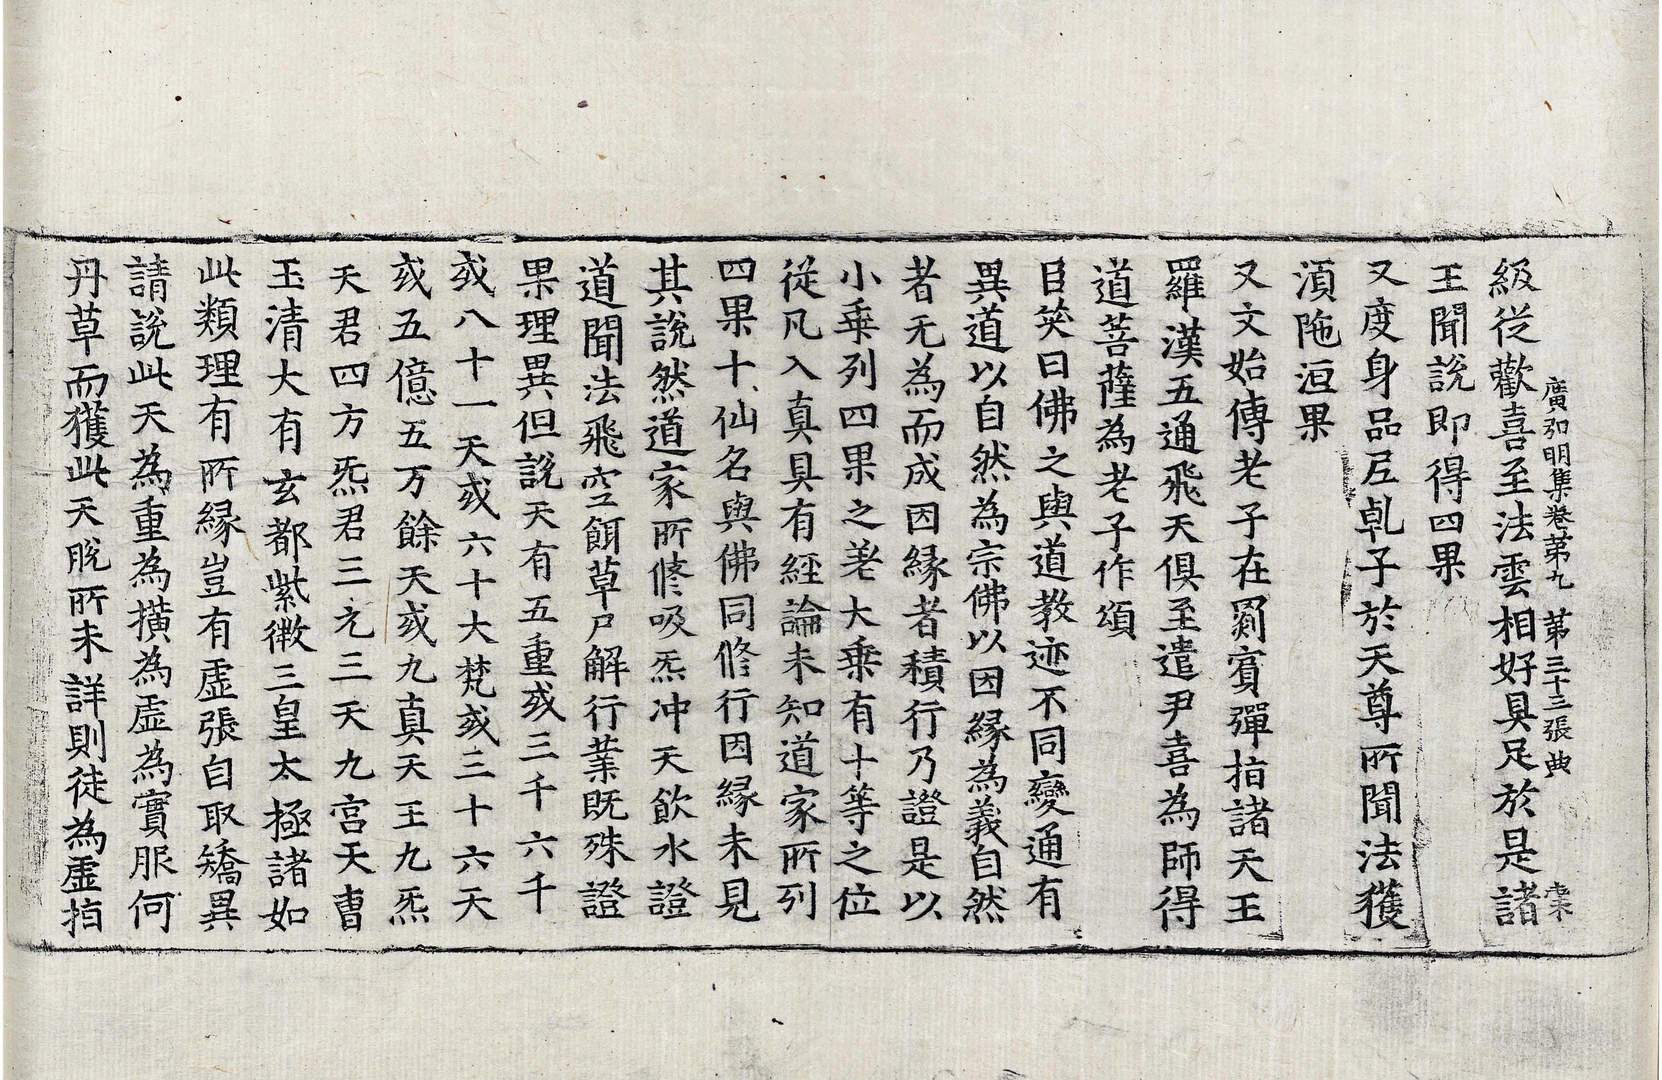 廣弘明集卷苐九 苐三十三張 典
級從歡喜至法雲相好具足於是諸
王聞說即得四果
又度身品𡰱乹子於天尊所聞法獲
湏陁洹果
又文始傳老子在罽賔彈指諸天王
羅漢五通飛天俱至遣尹喜為師得
道菩薩為老子作頌
臣笑曰佛之與道教迹不同變通有
異道以自然為宗佛以因縁為義自然
者无為而成因縁者積行乃證是以
小乗列四果之差大乗有十等之位
從凡入真具有經論未知道家所列
四果十仙名與佛同修行因縁未見
其說然道家所修吸炁冲天飲水證
道聞法飛空餌草尸解行業既殊證
果理異但說天有五重或三千六千
或八十一天或六十大梵或三十六天
或五億五万餘天或九真天王九炁
天君四方炁君三元三天九宮天曹
玉清大有玄都紫微三皇太極諸如
此類理有所縁豈有虛張自取矯異
請說此天為重為橫為虛為實服何
丹草而獲此天脫所未詳則徒為虛指